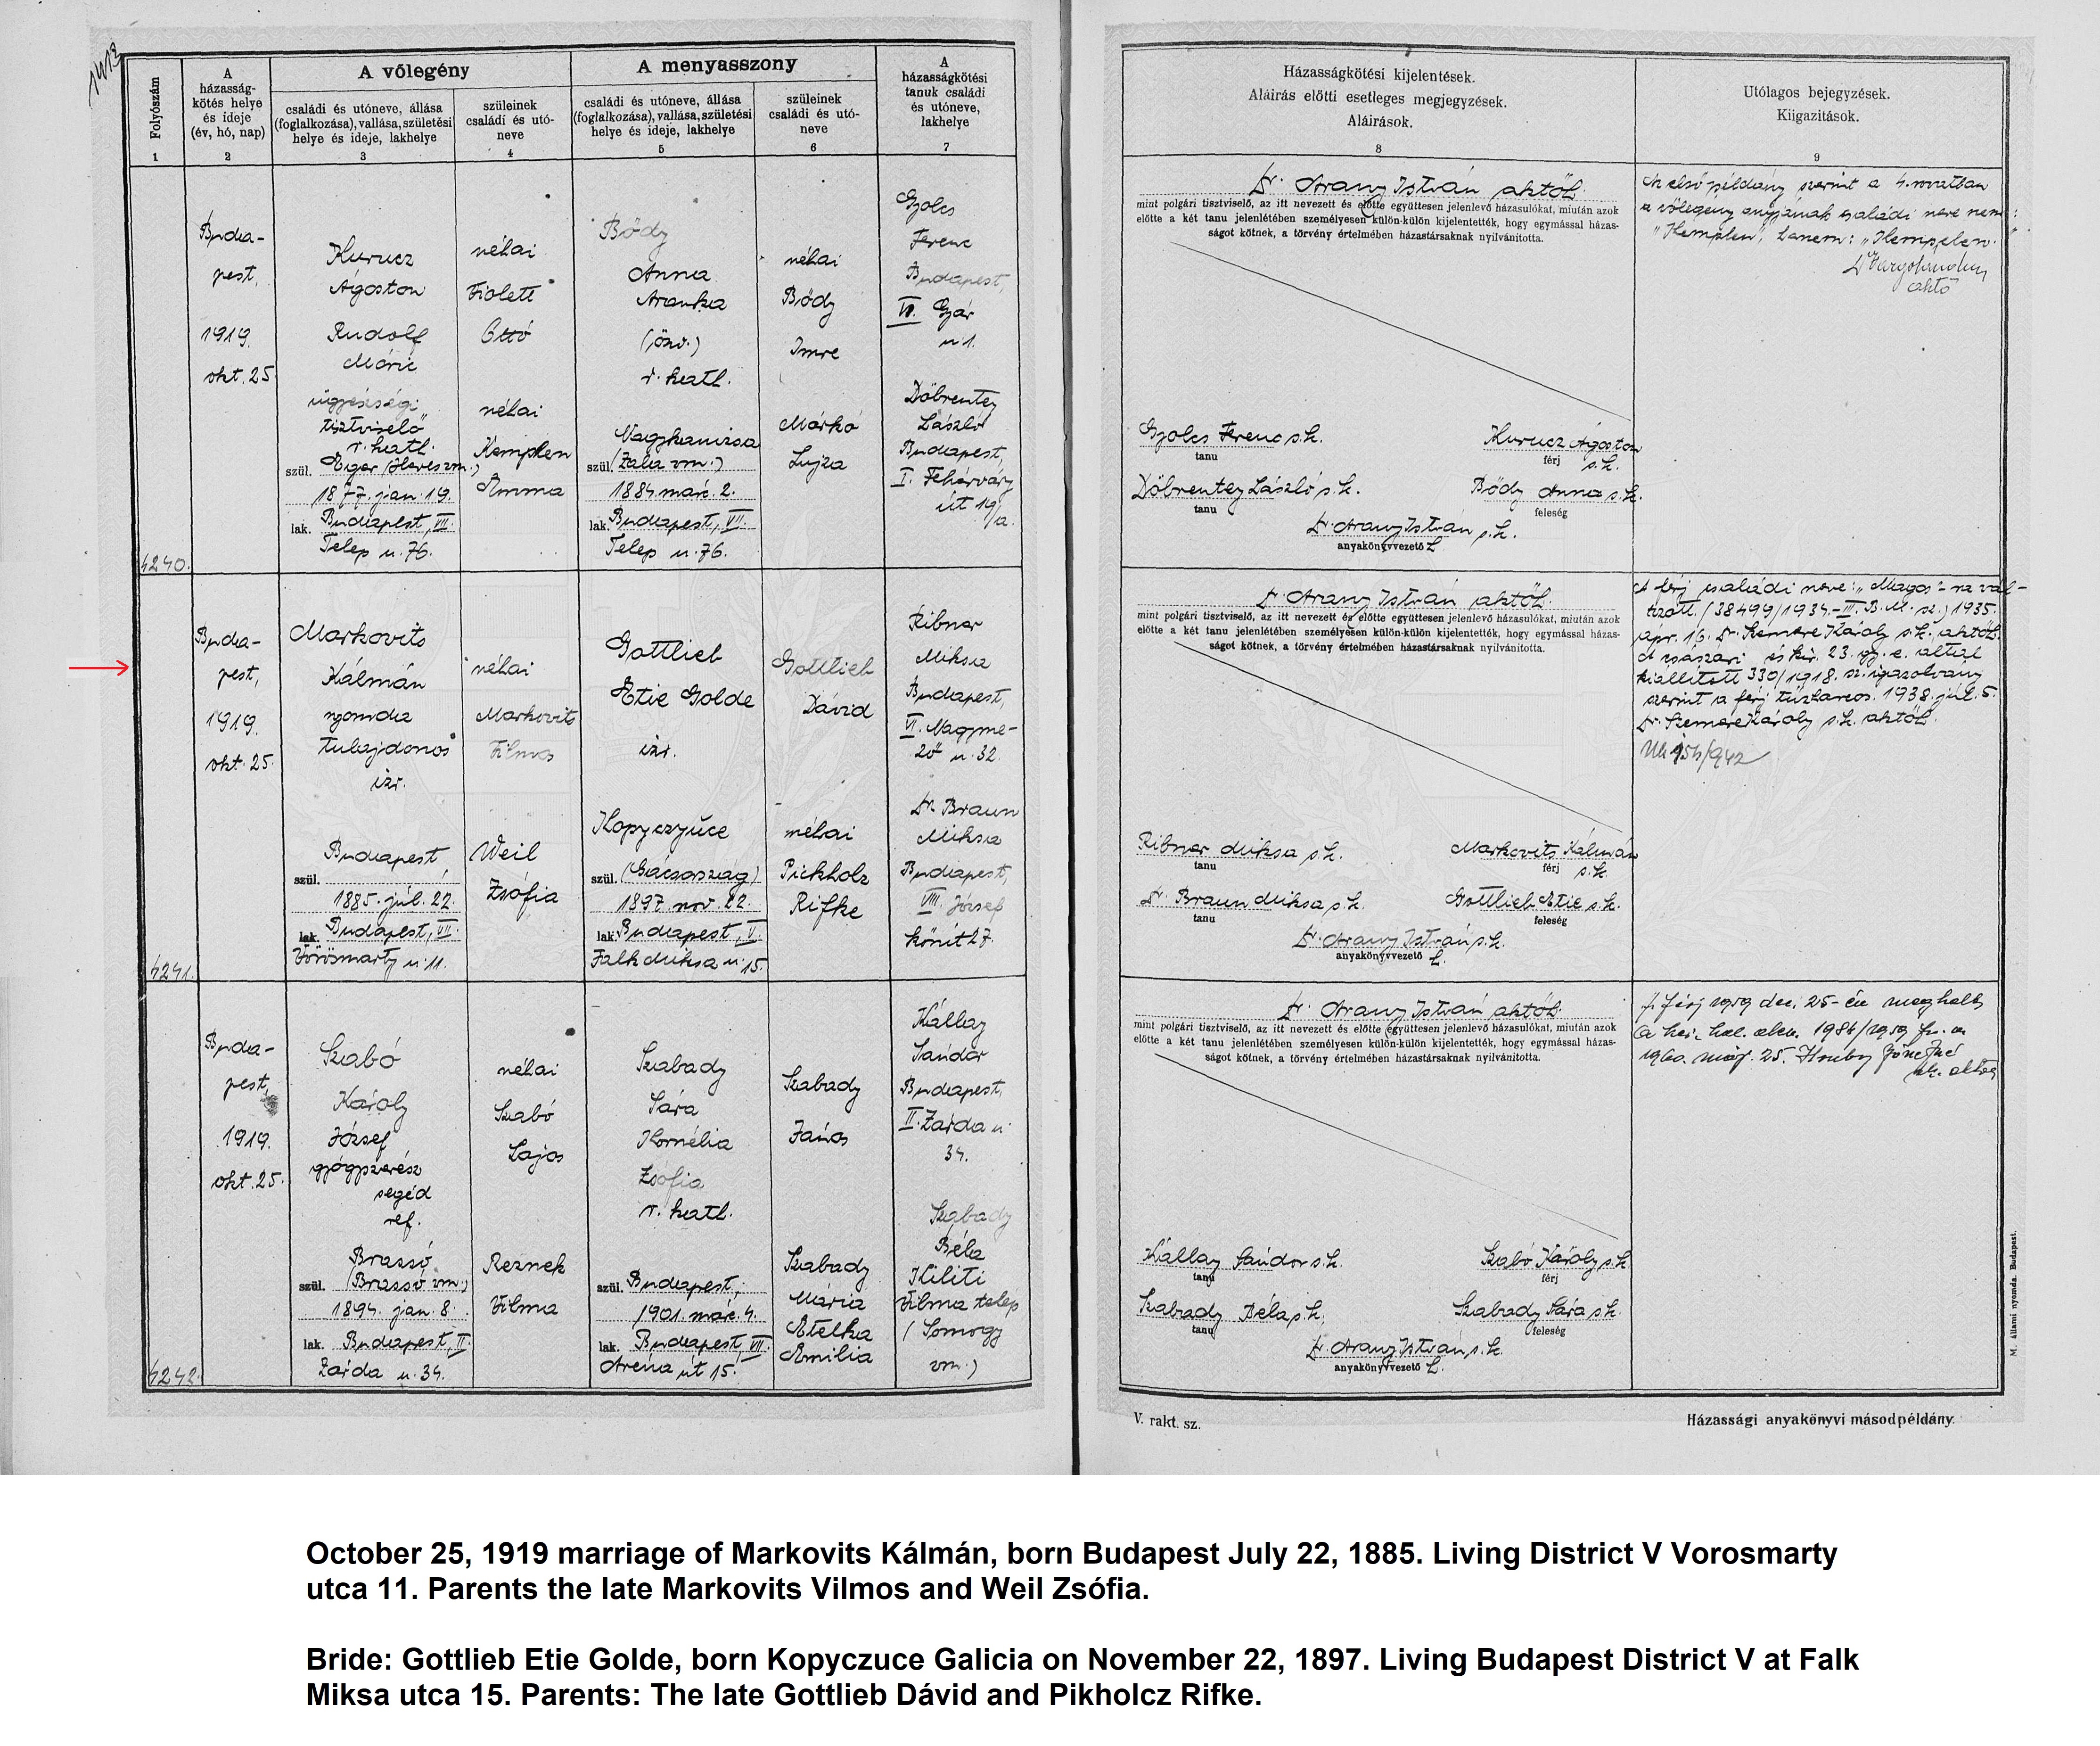 1413
Folyószám
1
A
házasság-
kötés helye
és ideje
(év, hó, nap)
2
A vőlegény
családi és utóneve, állása
(foglalkozása), vallása, születési
helye és ideje, lakhelye
3
szüleinek
családi és utó-
neve
4
A menyasszony
családi és utóneve, állása
(foglalkozása), vallása, születési
helye és ideje, lakhelye
5
szüleinek
családi és utó-
neve
6
A
házasságkötési
tanuk családi
és utóneve,
lakhelye
7
Házasságkötési kijelentések.
Aláirás előtti esetleges megjegyzések.
Aláirások.
8
Utólagos bejegyzések.
Kiigazitások.
9
4240.
Buda-
pest,
1919.
okt. 25
Kurucz
Ágoston
Rudolf
Móric
ügyészségi
tisztviselő
r. kath.
szül. Eger (Heves vm.)
1877. jan. 19.
lak. Budapest, VII.
Telep u. 76.
néhai
Fiolett
Ottó
néhai
Kemplen
Emma
Bődy
Anna
Aranka
(özv.)
r. kath.
Nagykanizsa
szül. (Zala vm.)
1884. márc. 2.
lak. Budapest, VII.
Telep u. 76.
néhai
Bődy
Imre
Márkó
Lujza
Ferenc
Budapest,
VI. Gyár
u. 1.
Döbrentey
László
Budapest,
I. Fehérváry
út 19/a.
Dr. Arany István aktőh.
mint polgári tisztviselő, az itt nevezett és előtte együttesen jelenlevő házasulókat, miután azok
előtte a két tanu jelenlétében személyesen külön-külön kijelentették, hogy egymással házas-
ságot kötnek, a törvény értelmében házastársaknak nyilvánította.
Ferenc s. k.
tanu
Kurucz Ágoston
férj s. k.
Döbrentey László s. k.
tanu
Bődy Anna s. k.
feleség
Dr. Arany István s. k.
anyakönyvvezető h.
Az első példány szerint a 4. rovatban
a vőlegény anyjának családi neve nem:
"Kemplen", hanem: "Kempelen."
4241.
Buda-
pest,
1919.
okt. 25.
Markovits
Kálmán
nyomda
tulajdonos
izr.
Budapest,
szül.
1885. júl. 22.
lak. Budapest, VII.
Vörösmarty u. 11.
néhai
Markovits
Vilmos
Weil
Zsófia
Gottlieb
Etie Golde
izr.
Kopyczyńce
szül. (Gácsország)
1897. nov. 22.
lak. Budapest, V.
Falk Miksa u. 15.
Gottlieb
Dávid
néhai
Pickholz
Rifke
Ribner
Miksa
Budapest,
VI. Nagyme-
ző u. 32.
Dr. Braun
Miksa
Budapest,
VIII. József
körút 27.
Dr. Arany István aktőh.
mint polgári tisztviselő, az itt nevezett és előtte együttesen jelenlevő házasulókat, miután azok
előtte a két tanu jelenlétében személyesen külön-külön kijelentették, hogy egymással házas-
ságot kötnek, a törvény értelmében házastársaknak nyilvánította.
Ribner Miksa s. k.
tanu
Markovits Kálmán
férj s. k.
Dr. Braun Miksa s. k.
tanu
Gottlieb Etie s. k.
feleség
Dr. Arany István s. k.
anyakönyvvezető h.
A férj családi neve: "Magos"-ra vál-
tozott. (38499/1934-III. B. M. sz.) 1935.
ápr. 16. Dr. Szemere Károly s. k. aktőh.
A császári és kir. 23. gy. e. által
kiállított 330/1918. sz. igazolvány
szerint a férj tűzharcos. 1938. júl. 5.
Dr. Szemere Károly s. k. aktőh.
4242.
Buda-
pest,
1919.
okt. 25.
Szabó
Károly
József
gyógyszerész
segéd
ref.
Brassó
szül. (Brassó vm.)
1894. jan. 8.
lak. Budapest, II.
Zárda u. 34.
néhai
Szabó
Lajos
Reznek
Vilma
Szabady
Sára
Kornélia
Zsófia
r. kath.
szül. Budapest,
1901. márc. 4.
lak. Budapest, VII.
Aréna út 15.
Szabady
János
Szabady
Mária
Etelka
Emilia
Kállay
Sándor
Budapest,
II. Zárda u.
34.
Szabady
Béla
Kiliti
Vilma telep
(Somogy
vm.)
Dr. Arany István aktőh.
mint polgári tisztviselő, az itt nevezett és előtte együttesen jelenlevő házasulókat, miután azok
előtte a két tanu jelenlétében személyesen külön-külön kijelentették, hogy egymással házas-
ságot kötnek, a törvény értelmében házastársaknak nyilvánította.
Kállay Sándor s. k.
tanu
Szabó Károly s. k.
férj
Szabady Béla s. k.
tanu
Szabady Sára s. k.
feleség
Dr. Arany István s. k.
anyakönyvvezető h.
A férj 1959 dec. 25-én meghalt
1984/1959
1960. máj. 25.
M. állami nyomda. Budapest.
V. rakt. sz.
Házassági anyakönyvi másodpéldány.
October 25, 1919 marriage of Markovits Kálmán, born Budapest July 22, 1885. Living District V Vorosmarty
utca 11. Parents the late Markovits Vilmos and Weil Zsófia.
Bride: Gottlieb Etie Golde, born Kopyczuce Galicia on November 22, 1897. Living Budapest District V at Falk
Miksa utca 15. Parents: The late Gottlieb Dávid and Pikholcz Rifke.